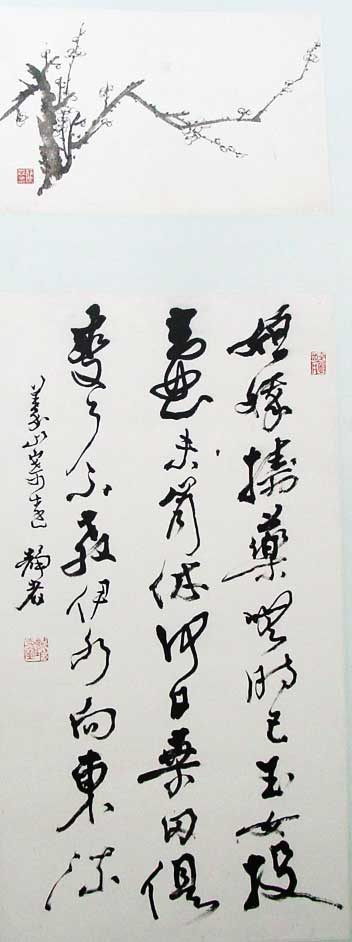 姮娥搗藥無時已玉女投
壺未肯休何日桑田俱
變了不教伊水向東流
義山寄遠 靜